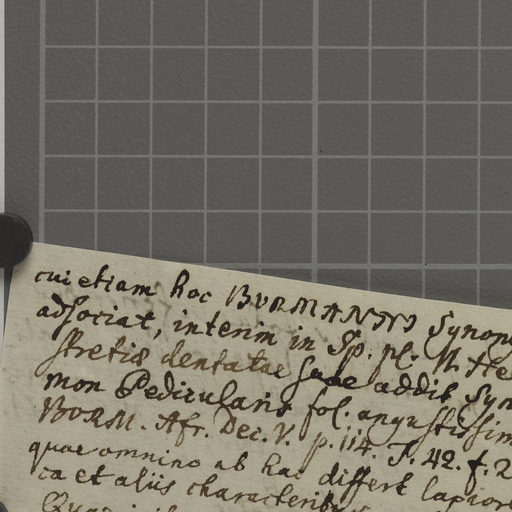 cui etiam hoc BURMANNI Synon
adsociat, interim in Sp. pl. N. He
stretiæ dentatae suae addit Syn
mon Pedicularis fol. angustissim
BURM. Afr. Dec. V. p. 114. T. 42. f. 2
quae omnino ab hac differt capior
ca et aliis characteribus